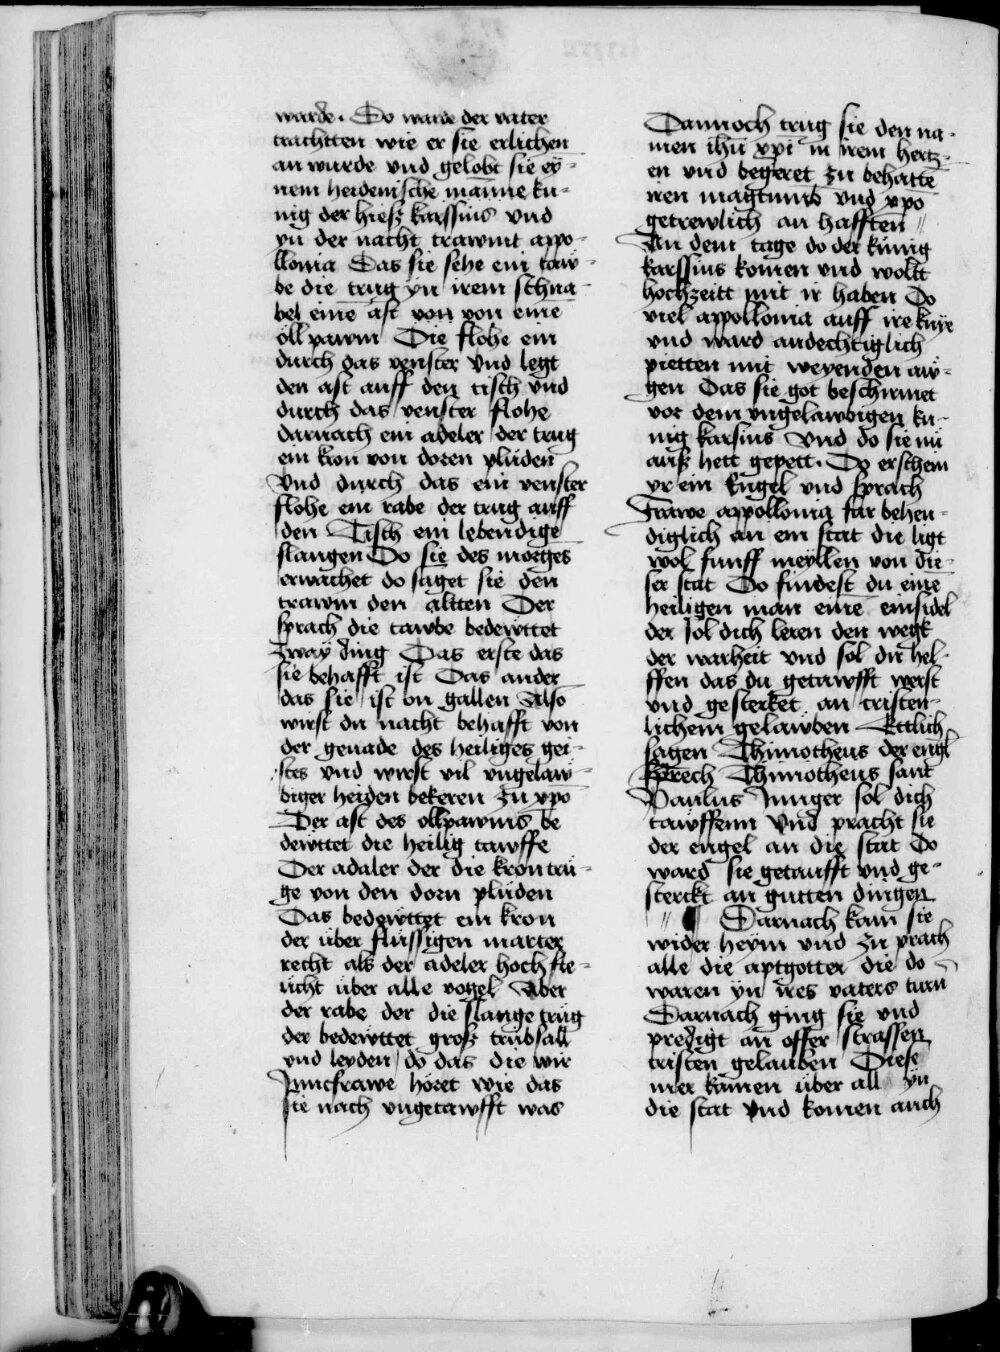 warde. Do warde der vater
trachtten wie er sie erlichen
an wurde vnd gelobt sie ey-
nem heidenische manne ku-
nig der hiesz karssius vnd
yn der nacht trawmt appo-
llonia Das sie sehe ein taw-
be die trug yn irem schna-
bel eine ast von von eine
öll pawm Die flohe ein
durch das venster Vnd legt
den ast auff den tisch vnd
durch das venster flohe
darnach ein adeler der trug
ein kron von doren pluden
Vnd durch das ein venster
flohe ein rabe der trug auff
den Tisch ein lebendige
slangen Do sie des morges
erwachet do saget sie den
trawm den altten Der
sprach die tawbe bedewttet
zway ding Das erste das
sie behafft ist Das ander
das sie ist on gallen Also
wirst du nacht behafft von
der genade des heiliges gei-
stes vnd wirst vil vngelaw-
biger heiden bekeren zu xpo
Der ast des ollpawms be
dewttet die heilig tawffe
Der adaler der die kron tru-
ge von den dorn pluden
Das bedewttet ein kron
der über flussigen marter
recht als der adeler hoch fle-
ucht über alle vogel Aber
der rabe der die slange trug
der bedewttet grosz trubsall
vnd leyden do das die wir
Junckfrawe höret wie das
sie nach vngetawfft was
Dannoch trug sie den na-
men ihu xpi in irem hertz-
en vnd begeret zu behatte
iren magtumb vnd xpo
getrewlich an hafften
An dem tage do der kunig
karssius komen vnd woltt
hochzeitt mit ir haben Do
viel appollonia auff ire knye
vnd ward andechtiglich
pietten mit weyenden aw-
gen Das sie got beschirmet
vor dem vngelawbigen ku-
nig karsius Vnd do sie nu
ausz hett gepett. Do erschein
yr ein Engel vnd sprach
Frawe appollonia far behen-
diglich an ein stat die ligt
wol funff meyllen von die-
ser stat Do findest du eine
heiligen man eine einsidel
der sol dich leren den wegk
der warheit vnd sol dir hel-
ffen das du getawfft werst
vnd gesterket an cristen-
lichem gelawben Ettlich
sagen Thimotheus der engl
sprech Thimotheus sant
Paulus Junger sol dich
tawffenn Vnd pracht sie
der engel an die stat Do
ward sie getaufft vnd ge-
sterckt an gutten dingen
Darnach kam sie
wider heym vnd zu prach
alle die aptgotter die do
waren yn ires vaters turn
Darnach ging sie vnd
predigt an offer strassen
cristen gelauben Diese
mer kamen über all yn
die stat Vnd komen auch